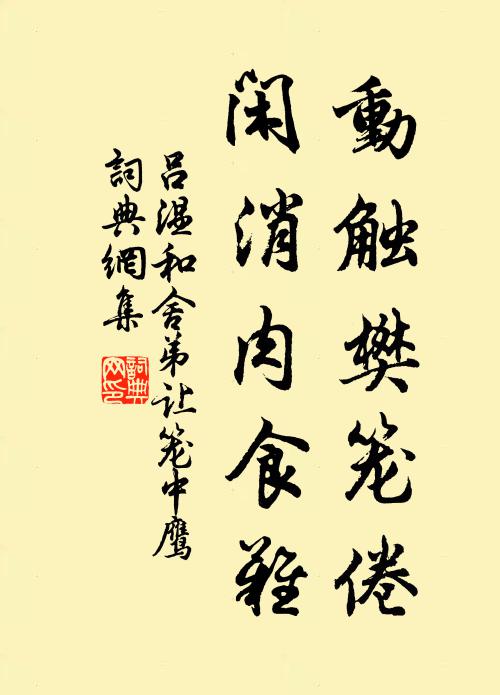 動触樊笼倦
闲消肉食難
吕温和舍弟让笼中鹰
詞典網集
詞典网印